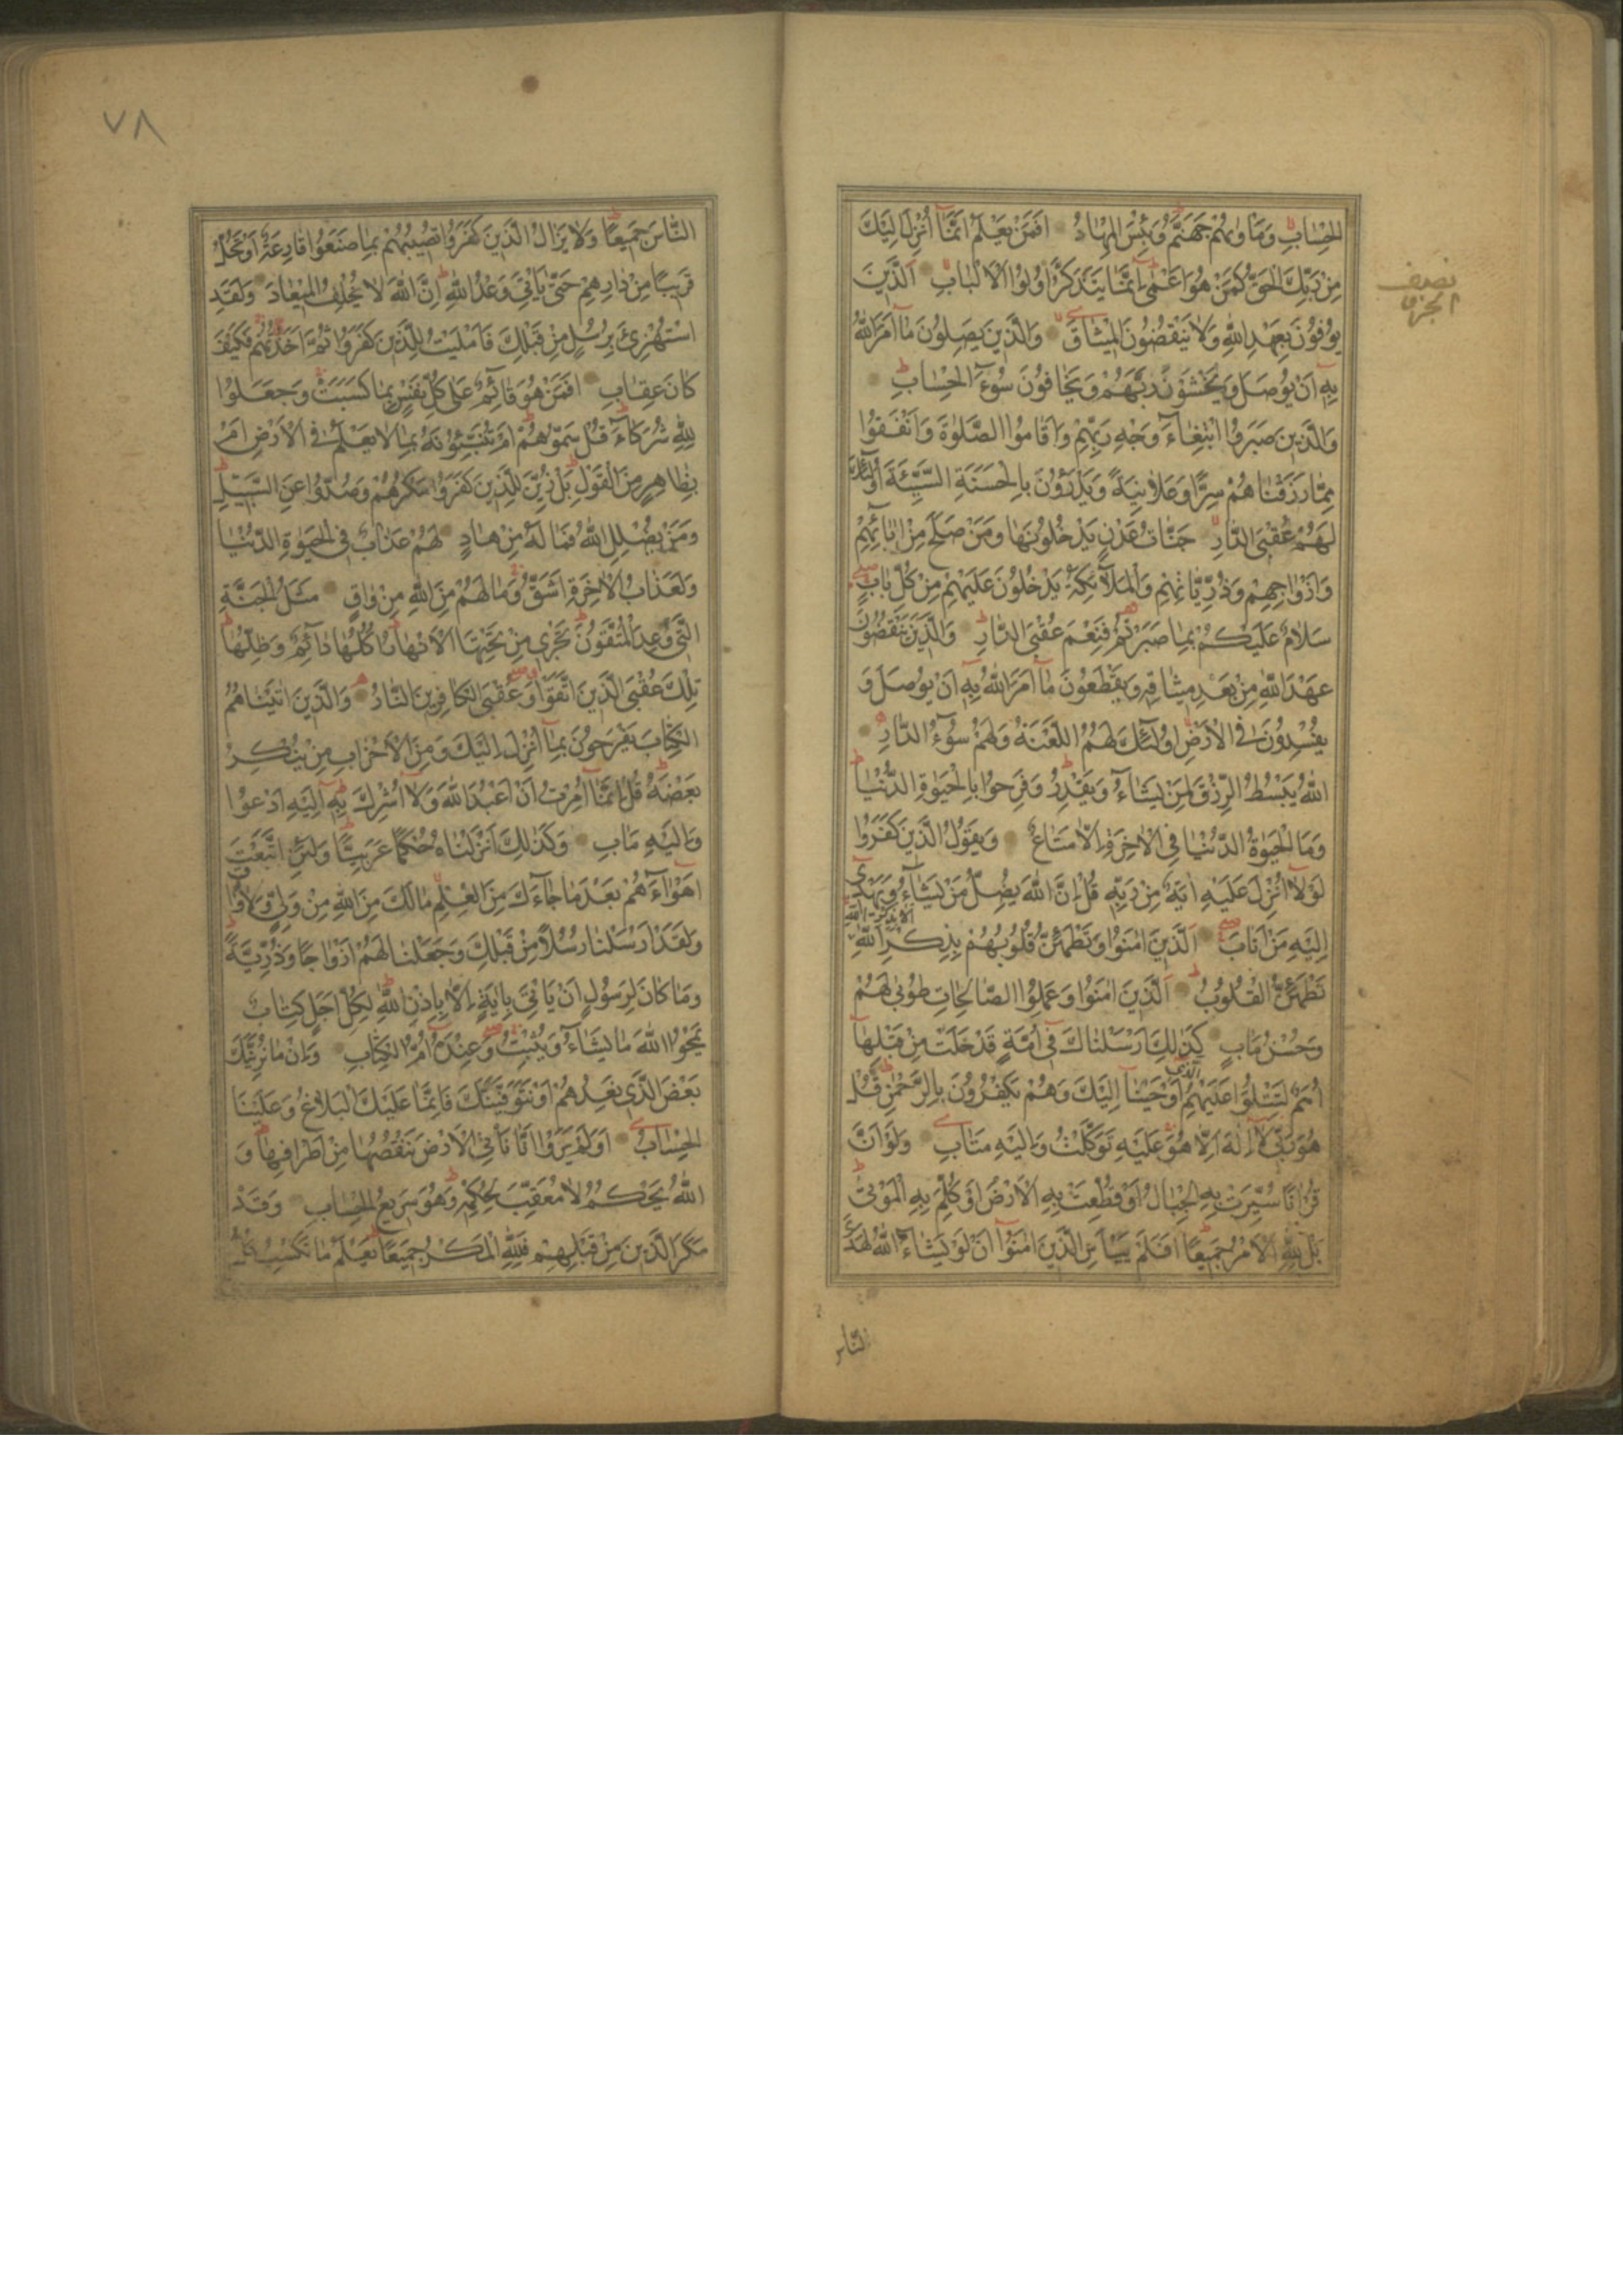 الحِسَابِ وَمَأْوٰيهُمْ جَهَنَّمُ وَبِئْسَ الْمِهَادُ اَفَمَنْ يَعْلَمُ اَنَّمَٓا اُنْزِلَ اِلَيْكَ
مِنْ رَبِّكَ الْحَقُّ كَمَنْ هُوَ اَعْمٰى اِنَّمَا يَتَذَكَّرُ اُولُوا الْاَلْبَابِ اَلَّذِينَ
يُوفُونَ بِعَهْدِ اللّٰهِ وَلَا يَنْقُضُونَ الْمِيثَاقَ وَالَّذِينَ يَصِلُونَ مَٓا اَمَرَ اللّٰهُ
بِهٖٓ اَنْ يُوصَلَ وَيَخْشَوْنَ رَبَّهُمْ وَيَخَافُونَ سُٓوءَ الْحِسَابِ
وَالَّذِينَ صَبَرُوا ابْتِغَٓاءَ وَجْهِ رَبِّهِمْ وَاَقَامُوا الصَّلٰوةَ وَاَنْفَقُوا
مِمَّا رَزَقْنَاهُمْ سِرًّا وَعَلَانِيَةً وَيَدْرَؤُنَ بِالْحَسَنَةِ السَّيِّئَةَ اُولٰٓئِكَ
لَهُمْ عُقْبَى الدَّارِ جَنَّاتُ عَدْنٍ يَدْخُلُونَهَا وَمَنْ صَلَحَ مِنْ اٰبَٓائِهِمْ
وَاَزْوَاجِهِمْ وَذُرِّيَّاتِهِمْ وَالْمَلٰٓئِكَةُ يَدْخُلُونَ عَلَيْهِمْ مِنْ كُلِّ بَابٍ
سَلَامٌ عَلَيْكُمْ بِمَا صَبَرْتُمْ فَنِعْمَ عُقْبَى الدَّارِ وَالَّذِينَ يَنْقُضُونَ
عَهْدَ اللّٰهِ مِنْ بَعْدِ مِيثَاقِهِ وَيَقْطَعُونَ مَٓا اَمَرَ اللّٰهُ بِهِٓ اَنْ يُوصَلَ وَ
يُفْسِدُونَ فِي الْاَرْضِ اُولٰٓئِكَ لَهُمُ اللَّعْنَةُ وَلَهُمْ سُٓوءُ الدَّارِ
اَللّٰهُ يَبْسُطُ الرِّزْقَ لِمَنْ يَشَٓاءُ وَيَقْدِرُ وَفَرِحُوا بِالْحَيٰوةِ الدُّنْيَا
وَمَا الْحَيٰوةُ الدُّنْيَا فِي الْاٰخِرَةِ اِلَّا مَتَاعٌ وَيَقُولُ الَّذِينَ كَفَرُوا
لَوْلَٓا اُنْزِلَ عَلَيْهِ اٰيَةٌ مِنْ رَبِّهِ قُلْ اِنَّ اللّٰهَ يُضِلُّ مَنْ يَشَٓاءُ وَيَهْدِٓي
اِلَيْهِ مَنْ اَنَابَ اَلَّذِينَ اٰمَنُوا وَتَطْمَئِنُّ قُلُوبُهُمْ بِذِكْرِ اللّٰهِ اَلَا بِذِكْرِ اللّٰهِ
تَطْمَئِنُّ الْقُلُوبُ اَلَّذِينَ اٰمَنُوا وَعَمِلُوا الصَّالِحَاتِ طُوبٰى لَهُمْ
وَحُسْنُ مَاٰبٍ كَذٰلِكَ اَرْسَلْنَاكَ فِٓي اُمَّةٍ قَدْ خَلَتْ مِنْ قَبْلِهَٓا
اُمَمٌ لِتَتْلُوَا عَلَيْهِمُ الَّذِٓي اَوْحَيْنَٓا اِلَيْكَ وَهُمْ يَكْفُرُونَ بِالرَّحْمٰنِ قُلْ
هُوَ رَبِّي لَٓا اِلٰهَ اِلَّا هُوَ عَلَيْهِ تَوَكَّلْتُ وَاِلَيْهِ مَتَابِ وَلَوْ اَنَّ
قُرْاٰنًا سُيِّرَتْ بِهِ الْجِبَالُ اَوْ قُطِّعَتْ بِهِ الْاَرْضُ اَوْ كُلِّمَ بِهِ الْمَوْتٰى
بَلْ لِلّٰهِ الْاَمْرُ جَمِيعًا اَفَلَمْ يَيْاَسِ الَّذِينَ اٰمَنُٓوا اَنْ لَوْ يَشَٓاءُ اللّٰهُ لَهَدَى
النَّاسَ
نصف
الجزء
٧٨
النَّاسَ جَمِيعًا وَلَا يَزَالُ الَّذِينَ كَفَرُوا تُصِيبُهُمْ بِمَا صَنَعُوا قَارِعَةٌ اَوْ تَحُلُّ
قَرِيبًا مِنْ دَارِهِمْ حَتّٰى يَاْتِيَ وَعْدُ اللّٰهِ اِنَّ اللّٰهَ لَا يُخْلِفُ الْمِيعَادَ وَلَقَدِ
اسْتُهْزِئَ بِرُسُلٍ مِنْ قَبْلِكَ فَاَمْلَيْتُ لِلَّذِينَ كَفَرُوا ثُمَّ اَخَذْتُهُمْ فَكَيْفَ
كَانَ عِقَابِ اَفَمَنْ هُوَ قَٓائِمٌ عَلٰى كُلِّ نَفْسٍ بِمَا كَسَبَتْ وَجَعَلُوا
لِلّٰهِ شُرَكَٓاءَ قُلْ سَمُّوهُمْ اَمْ تُنَبِّؤُنَهُ بِمَا لَا يَعْلَمُ فِي الْاَرْضِ اَمْ
بِظَاهِرٍ مِنَ الْقَوْلِ بَلْ زُيِّنَ لِلَّذِينَ كَفَرُوا مَكْرُهُمْ وَصُدُّوا عَنِ السَّبِيلِ
وَمَنْ يُضْلِلِ اللّٰهُ فَمَا لَهُ مِنْ هَادٍ لَهُمْ عَذَابٌ فِي الْحَيٰوةِ الدُّنْيَا
وَلَعَذَابُ الْاٰخِرَةِ اَشَقُّ وَمَا لَهُمْ مِنَ اللّٰهِ مِنْ وَاقٍ مَثَلُ الْجَنَّةِ
الَّتِي وُعِدَ الْمُتَّقُونَ تَجْرِي مِنْ تَحْتِهَا الْاَنْهَارُ اُكُلُهَا دَٓائِمٌ وَظِلُّهَا
تِلْكَ عُقْبَى الَّذِينَ اتَّقَوْا وَعُقْبَى الْكَافِرِينَ النَّارُ وَالَّذِينَ اٰتَيْنَاهُمُ
الْكِتَابَ يَفْرَحُونَ بِمَٓا اُنْزِلَ اِلَيْكَ وَمِنَ الْاَحْزَابِ مَنْ يُنْكِرُ
بَعْضَهُ قُلْ اِنَّمَٓا اُمِرْتُ اَنْ اَعْبُدَ اللّٰهَ وَلَٓا اُشْرِكَ بِهِ اِلَيْهِ اَدْعُوا
وَاِلَيْهِ مَاٰبِ وَكَذٰلِكَ اَنْزَلْنَاهُ حُكْمًا عَرَبِيًّا وَلَئِنِ اتَّبَعْتَ
اَهْوَٓاءَهُمْ بَعْدَ مَا جَٓاءَكَ مِنَ الْعِلْمِ مَا لَكَ مِنَ اللّٰهِ مِنْ وَلِيٍّ وَلَا وَاقٍ
وَلَقَدْ اَرْسَلْنَا رُسُلًا مِنْ قَبْلِكَ وَجَعَلْنَا لَهُمْ اَزْوَاجًا وَذُرِّيَّةً
وَمَا كَانَ لِرَسُولٍ اَنْ يَاْتِيَ بِاٰيَةٍ اِلَّا بِاِذْنِ اللّٰهِ لِكُلِّ اَجَلٍ كِتَابٌ
يَمْحُوا اللّٰهُ مَا يَشَٓاءُ وَيُثْبِتُ وَعِنْدَهُٓ اُمُّ الْكِتَابِ وَاِنْ مَا نُرِيَنَّكَ
بَعْضَ الَّذِي نَعِدُهُمْ اَوْ نَتَوَفَّيَنَّكَ فَاِنَّمَا عَلَيْكَ الْبَلَاغُ وَعَلَيْنَا
الْحِسَابُ اَوَلَمْ يَرَوْا اَنَّا نَاْتِي الْاَرْضَ نَنْقُصُهَا مِنْ اَطْرَافِهَا وَ
اللّٰهُ يَحْكُمُ لَا مُعَقِّبَ لِحُكْمِهِ وَهُوَ سَرِيعُ الْحِسَابِ وَقَدْ
مَكَرَ الَّذِينَ مِنْ قَبْلِهِمْ فَلِلّٰهِ الْمَكْرُ جَمِيعًا يَعْلَمُ مَا تَكْسِبُ كُلُّ